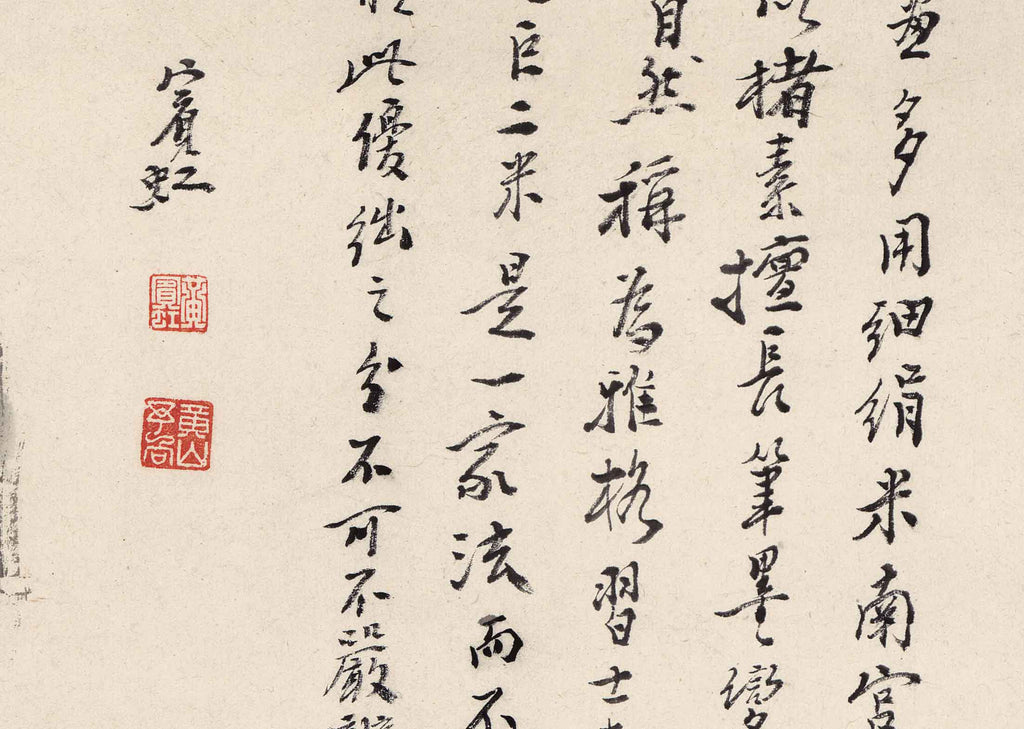 畫多用細絹米南宮
以楮素擅長筆墨變
自然稱為雅格習士
巨二米是一家法而不
於此優絀之分不可不嚴辨
賓虹
黃賓虹
黃山予向